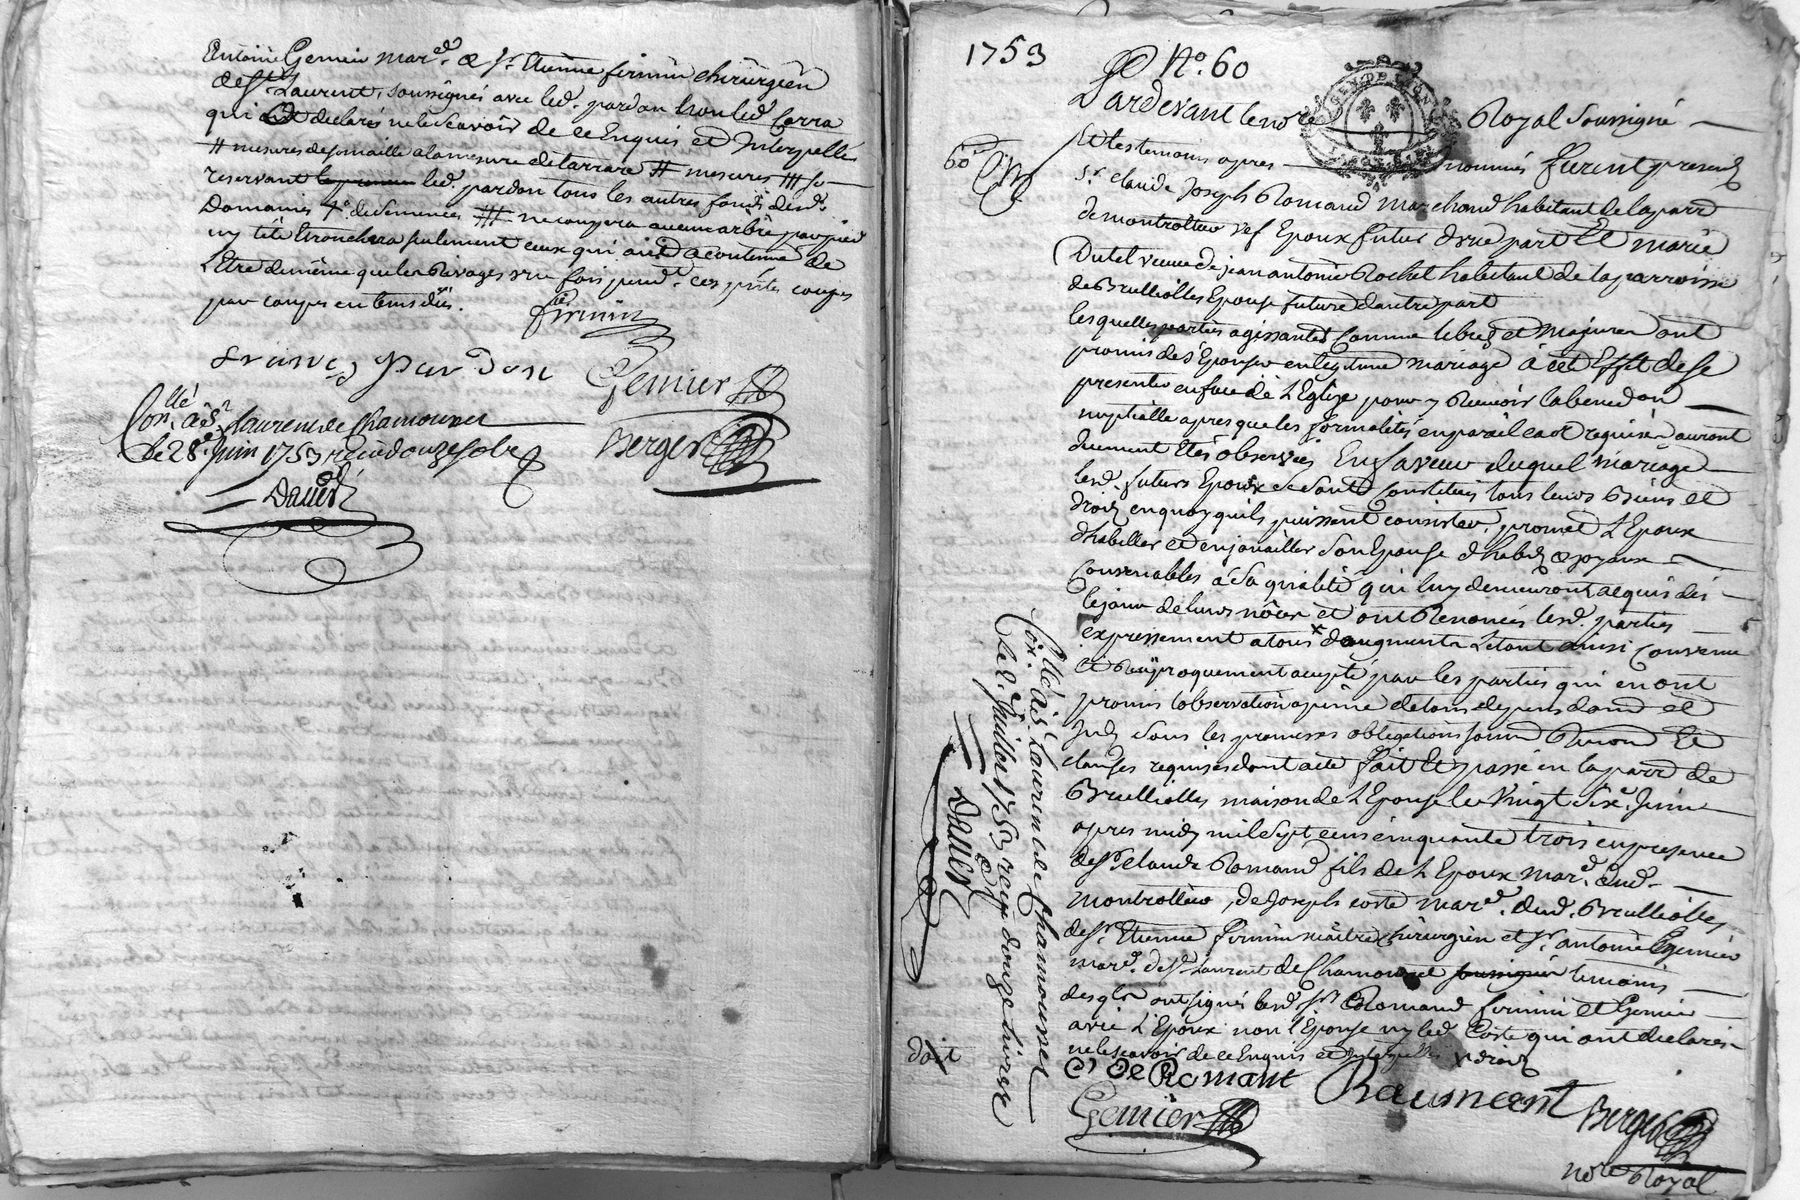 Antoine Gemier mar.d & Sr. Etienne firmin chirurgien
de St Laurent, soussignés avec led. pardon non led Carra
qui a declaré ne le scavoir de ce Enquis et Interpellés
# mesures de a la mesure de tarrare # mesures ### se
reservant led. pardon tous les autres fonds desd.
Domaines 4°. de semences ### ne coupera aucun arbre par pied
ny tête tronchera seulement ceux qui ont accoutumé de
L'etre de même que les Rivages une fois pend. ces ptes coupes
par coupes en tems dûs.
firmin
franc pardon Gemier
Con.llé à St. Laurens de Chamousset
le 28e. Juin 1753 reçu douze sols Berger
Daver
1753 No. 60
GEN. DE LYON
Pardevant le no.re Royal soussigné
60e
Et les temoins apres nommés furent presens
Sr. claude Joseph Romand marchand habitant de la parr.
de montrottier vef Epoux futur d'une part Et marie
Dutel veuve de jean antoine Rochet habitant de la parroisse
de Brullioles Epouse future d'autre part
lesquelles parties agissantes comme libres et majeures ont
promis de s'Epouser en legitime mariage à cet Effet de se
presenter en face de L'Eglise pour y Recevoir la bened.on
nuptialle apres que les formalités en pareil cas requises auront
duement Etés observées En faveur duquel mariage
lesd. futurs Epoux se sont Constitués tous leurs Biens et
droits en quoy quils puissent consister, promet L'Epoux
d'habiller et enjoailler son Epouse d'habits & joyaux
Convenables à sa qualité qui luy demeureront acquis dès
le jour de leurs nôces et ont Renoncés lesd. parties
expressement a tous x d'augment L'etant ainsi Convenu
Et Reciproquement accepté par les parties qui en ont
promis l'observation a peine de tous depens dom.s et
Ints sous les promesses obligations soum.s Renon. Et
clauses requises dont acte fait Et passé en la parr. de
Brullioles maison de L'Epouse le Vingt six.e Juin
apres midy mil sept cens cinquante trois en presence
de Sr. claude Romand fils de L'Epoux mar.d dud.
montrottier, de Joseph coste mar.d dud. Brullioles
de Sr. Etienne firmin maitre chirurgien et Sr. antoine Gemier
mar.d de St. Laurent de Chamousset soussignés temoins
desqls ont signés lesd. Srs Romand firmin et Gemier
avec L'Epoux non l'Epouse ny led. Coste qui ont declarés
ne le scavoir de ce Enquis et Interpellés x droits
doit
C J Romant Raumant Berger
Gemier
no.re Royal
Con.llé à St. Laurent de Chamousset
le 2. Juillet 1753 reçu douze livres
Daver